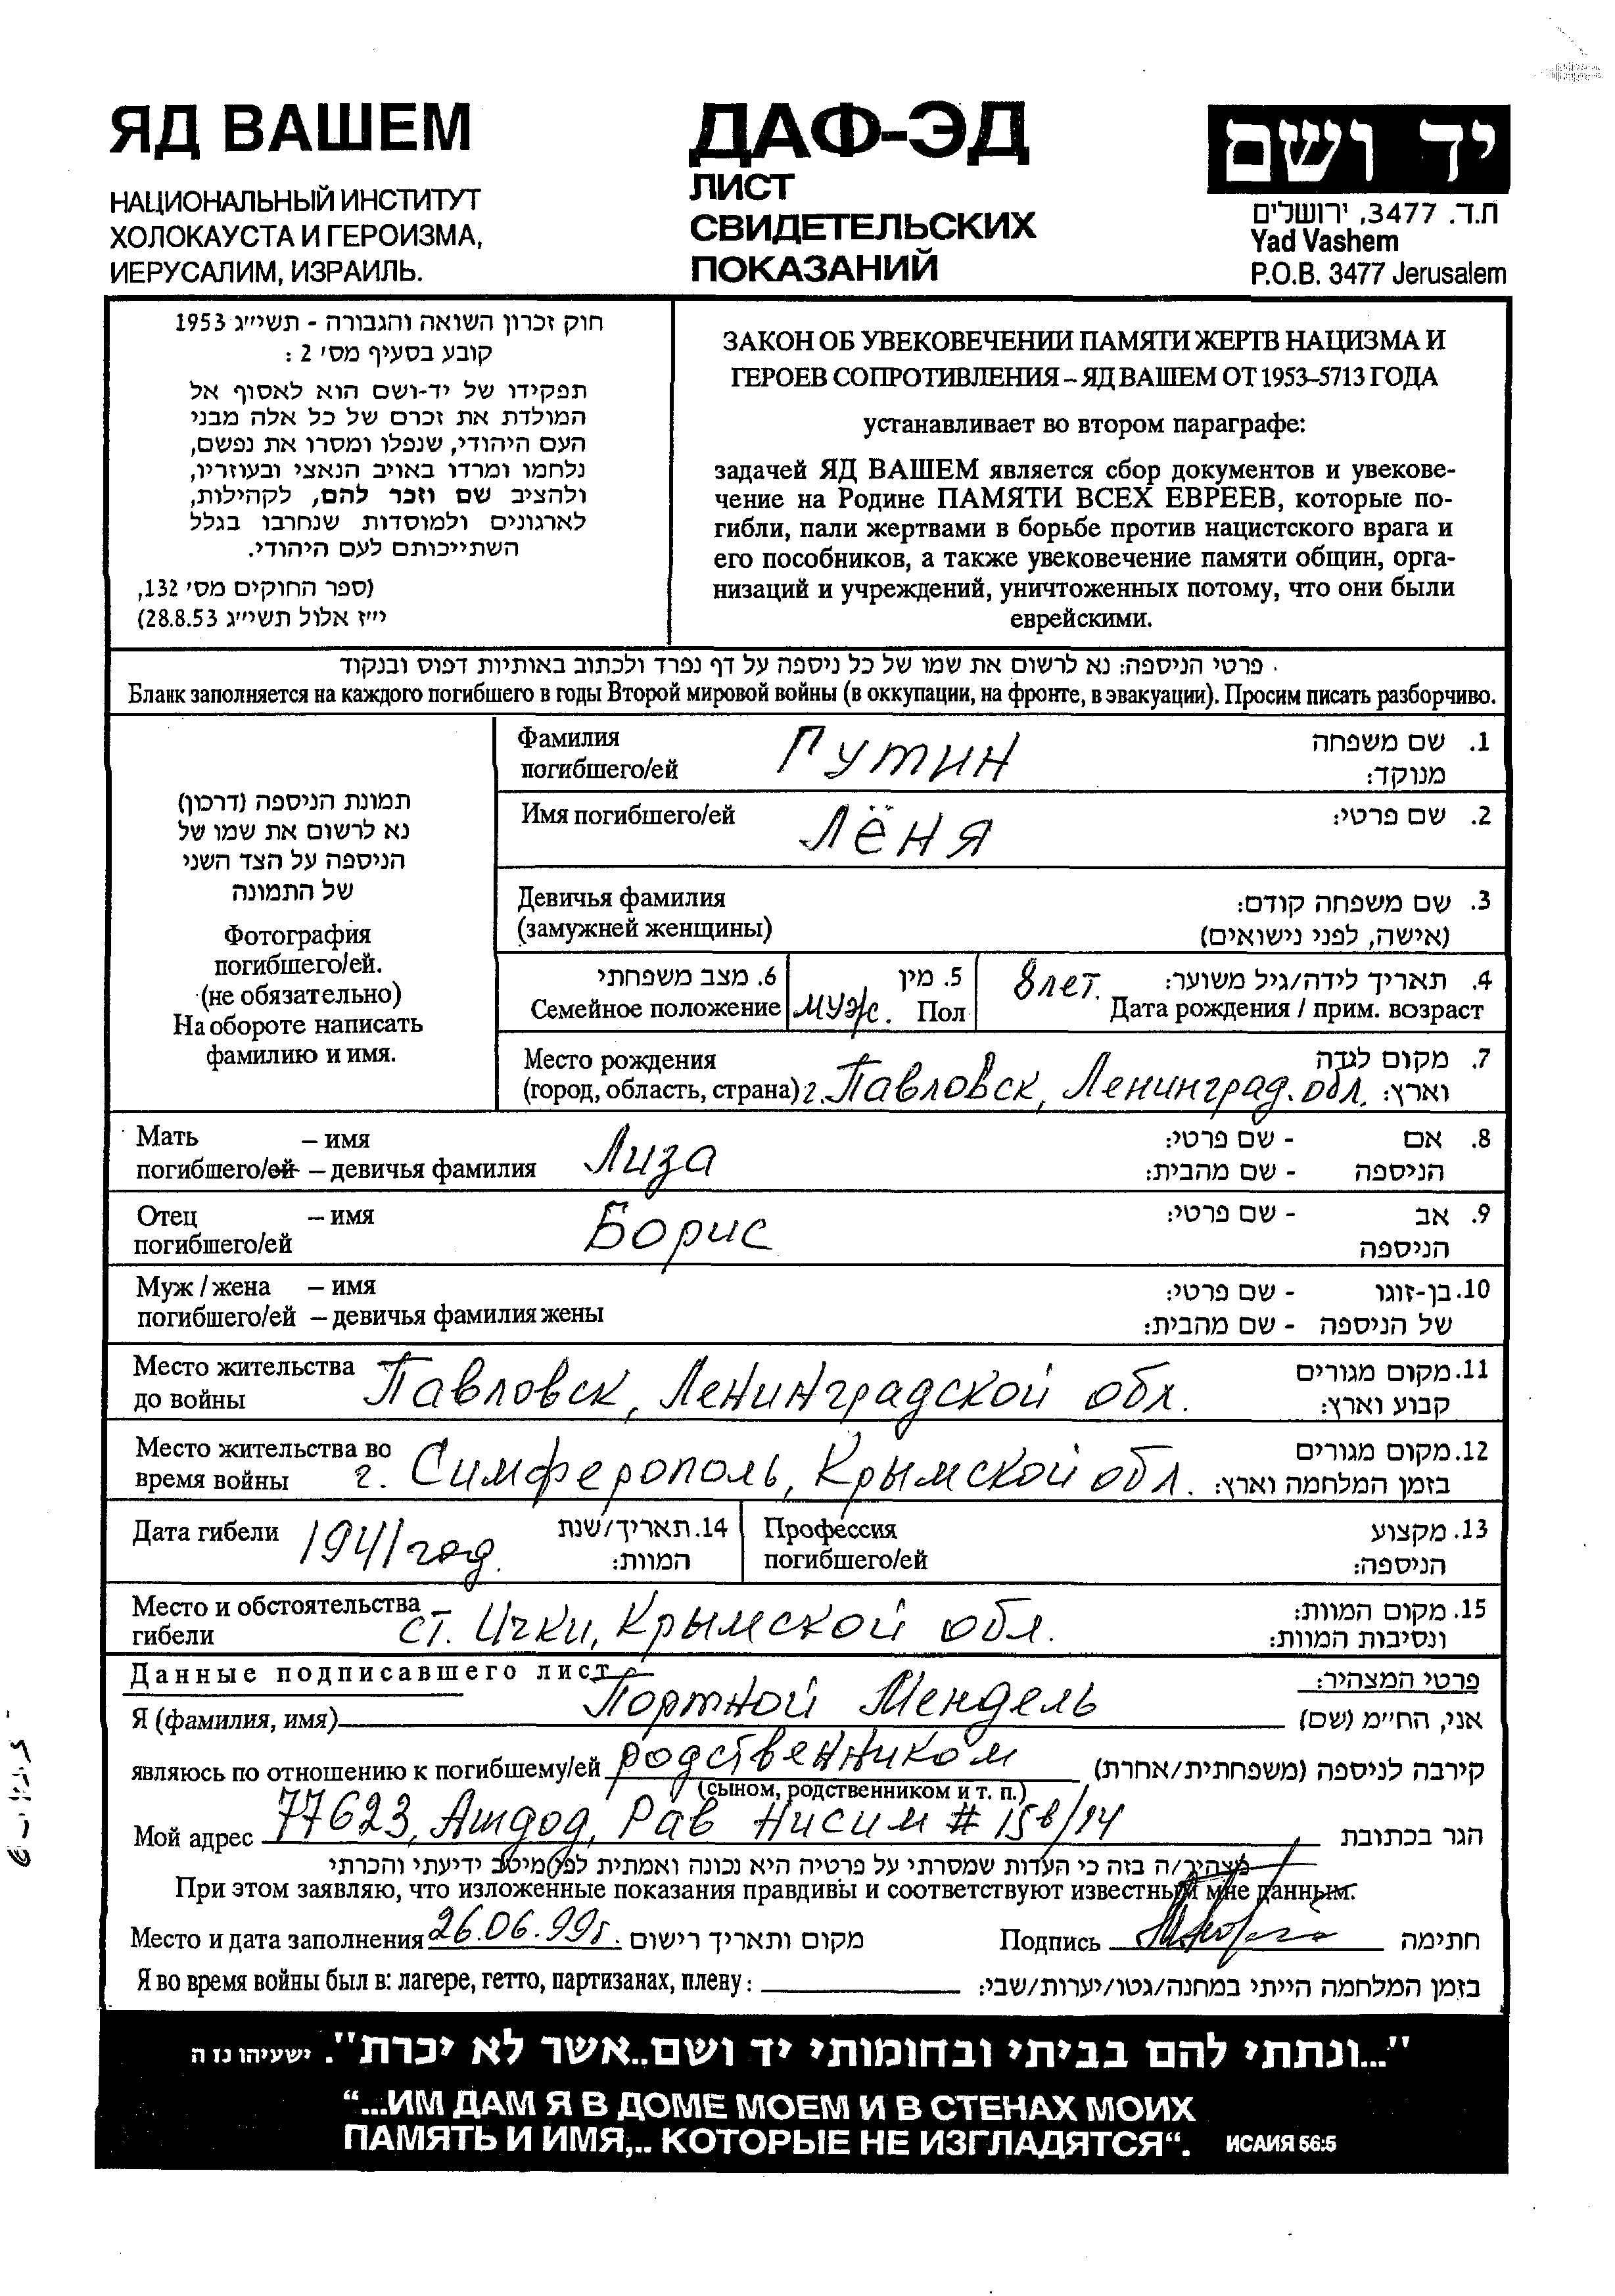 ЯД ВАШЕМ
НАЦИОНАЛЬНЫЙ ИНСТИТУТ
ХОЛОКАУСТА И ГЕРОИЗМА,
ИЕРУСАЛИМ, ИЗРАИЛЬ.
ДАФ-ЭД
ЛИСТ
СВИДЕТЕЛЬСКИХ
ПОКАЗАНИЙ
יד ושם
ת.ד. 3477, ירושלים
Yad Vashem
P.O.B. 3477 Jerusalem
חוק זכרון השואה והגבורה - תשי״ג 1953
קובע בסעיף מס׳ 2 :
תפקידו של יד-ושם הוא לאסוף אל
המולדת את זכרם של כל אלה מבני
העם היהודי, שנפלו ומסרו את נפשם,
נלחמו ומרדו באויב הנאצי ובעוזריו,
ולהציב שם וזכר להם, לקהילות,
לארגונים ולמוסדות שנחרבו בגלל
השתייכותם לעם היהודי.
(ספר החוקים מס׳ 132,
י״ז אלול תשי״ג 28.8.53)
ЗАКОН ОБ УВЕКОВЕЧЕНИИ ПАМЯТИ ЖЕРТВ НАЦИЗМА И
ГЕРОЕВ СОПРОТИВЛЕНИЯ – ЯД ВАШЕМ ОТ 1953–5713 ГОДА
устанавливает во втором параграфе:
задачей ЯД ВАШЕМ является сбор документов и увекове-
чение на Родине ПАМЯТИ ВСЕХ ЕВРЕЕВ, которые по-
гибли, пали жертвами в борьбе против нацистского врага и
его пособников, а также увековечение памяти общин, орга-
низаций и учреждений, уничтоженных потому, что они были
еврейскими.
פרטי הניספה: נא לרשום את שמו של כל ניספה על דף נפרד ולכתוב באותיות דפוס ובנקוד
Бланк заполняется на каждого погибшего в годы Второй мировой войны (в оккупации, на фронте, в эвакуации). Просим писать разборчиво.
תמונת הניספה (דרכון)
נא לרשום את שמו של
הניספה על הצד השני
של התמונה
Фотография
погибшего/ей.
(не обязательно)
На обороте написать
фамилию и имя.
Фамилия Гутин 1. שם משפחה
погибшего/ей מנוקד:
Имя погибшего/ей Лёня 2. שם פרטי:
Девичья фамилия 3. שם משפחה קודם:
(замужней женщины) (אישה, לפני נישואים)
6. מצב משפחתי 5. מין 8 лет. 4. תאריך לידה/גיל משוער:
Семейное положение муж. Пол Дата рождения / прим. возраст
Место рождения 7. מקום לידה
(город, область, страна) г. Павловск, Ленинград. обл. וארץ:
Мать – имя Лиза - שם פרטי: 8. אם
погибшего/ей – девичья фамилия - שם מהבית: הניספה
Отец – имя Борис - שם פרטי: 9. אב
погибшего/ей הניספה
Муж / жена – имя - שם פרטי: 10. בן-זוגו
погибшего/ей – девичья фамилия жены - שם מהבית: של הניספה
Место жительства Павловск, Ленинградской обл. 11. מקום מגורים
до войны קבוע וארץ:
Место жительства во 12. מקום מגורים
время войны г. Симферополь, Крымской обл. בזמן המלחמה וארץ:
Дата гибели 1941 год. 14. תאריך/שנת Профессия 13. מקצוע
המוות: погибшего/ей הניספה:
Место и обстоятельства 15. מקום המוות:
гибели ст. Ички, Крымской обл. ונסיבות המוות:
Данные подписавшего лист פרטי המצהיר:
Я (фамилия, имя) Портной Мендель אני, הח״מ (שם)
являюсь по отношению к погибшему/ей родственником קירבה לניספה (משפחתית/אחרת)
(сыном, родственником и т. п.)
Мой адрес 77623, Ашдод, Рав Нисим # 15в/14 הגר בכתובת
מצהיר/ה בזה כי העדות שמסרתי על פרטיה היא נכונה ואמתית לפי מיטב ידיעתי והכרתי
При этом заявляю, что изложенные показания правдивы и соответствуют известным мне данным.
Место и дата заполнения 26.06.99г. מקום ותאריך רישום Подпись חתימה
Я во время войны был в: лагере, гетто, партизанах, плену: בזמן המלחמה הייתי במחנה/גטו/יערות/שבי:
"...ונתתי להם בביתי ובחומותי יד ושם..אשר לא יכרת". ישעיהו נז ה
“...ИМ ДАМ Я В ДОМЕ МОЕМ И В СТЕНАХ МОИХ
ПАМЯТЬ И ИМЯ,.. КОТОРЫЕ НЕ ИЗГЛАДЯТСЯ“. ИСАИЯ 56:5